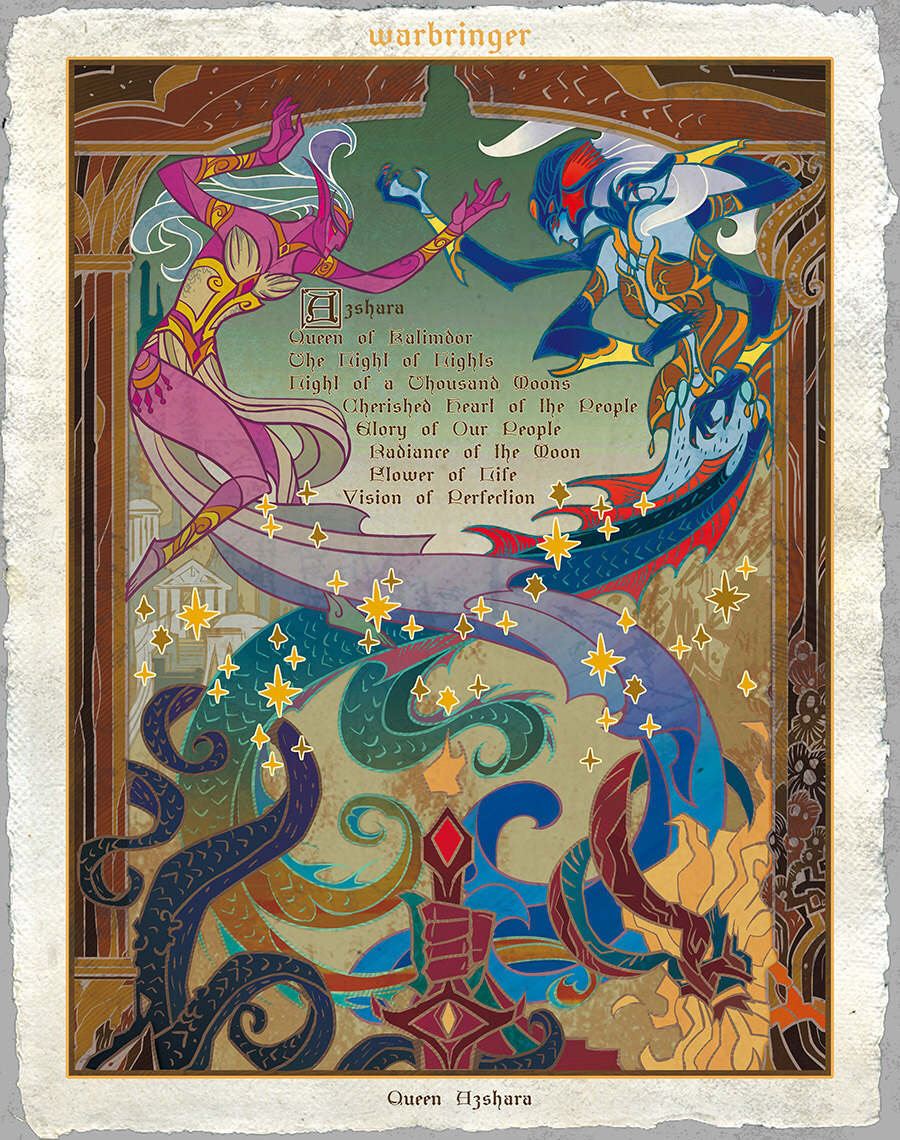 warbringer
Azshara
Queen of Kalimdor
The Light of Lights
Light of a Thousand Moons
Cherished Heart of the People
Glory of Our People
Radiance of the Moon
Flower of Life
Vision of Perfection
Queen Azshara